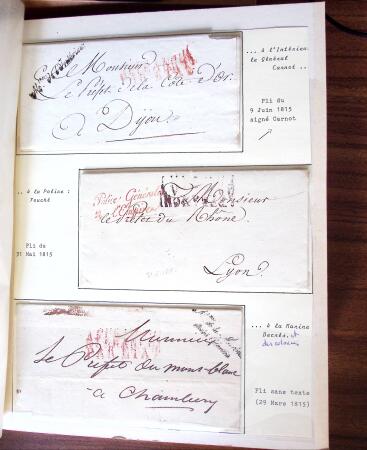 ... à l'Intérieur
le Général
Carnot ..
Monsieur
Le Préfet de la Côte d'Or
à Dijon
Pli du
9 Juin 1815
signé Carnot
... à la Police :
Fouché
Police Générale
de l'Empire
A Monsieur
le Préfet du Rhône
Lyon
Pli du
31 Mai 1815
... à la Marine
Decrès. et
des colonies
Monsieur
Le Préfet du mont-blanc
à Chambery
Pli sans texte
(29 Mars 1815)